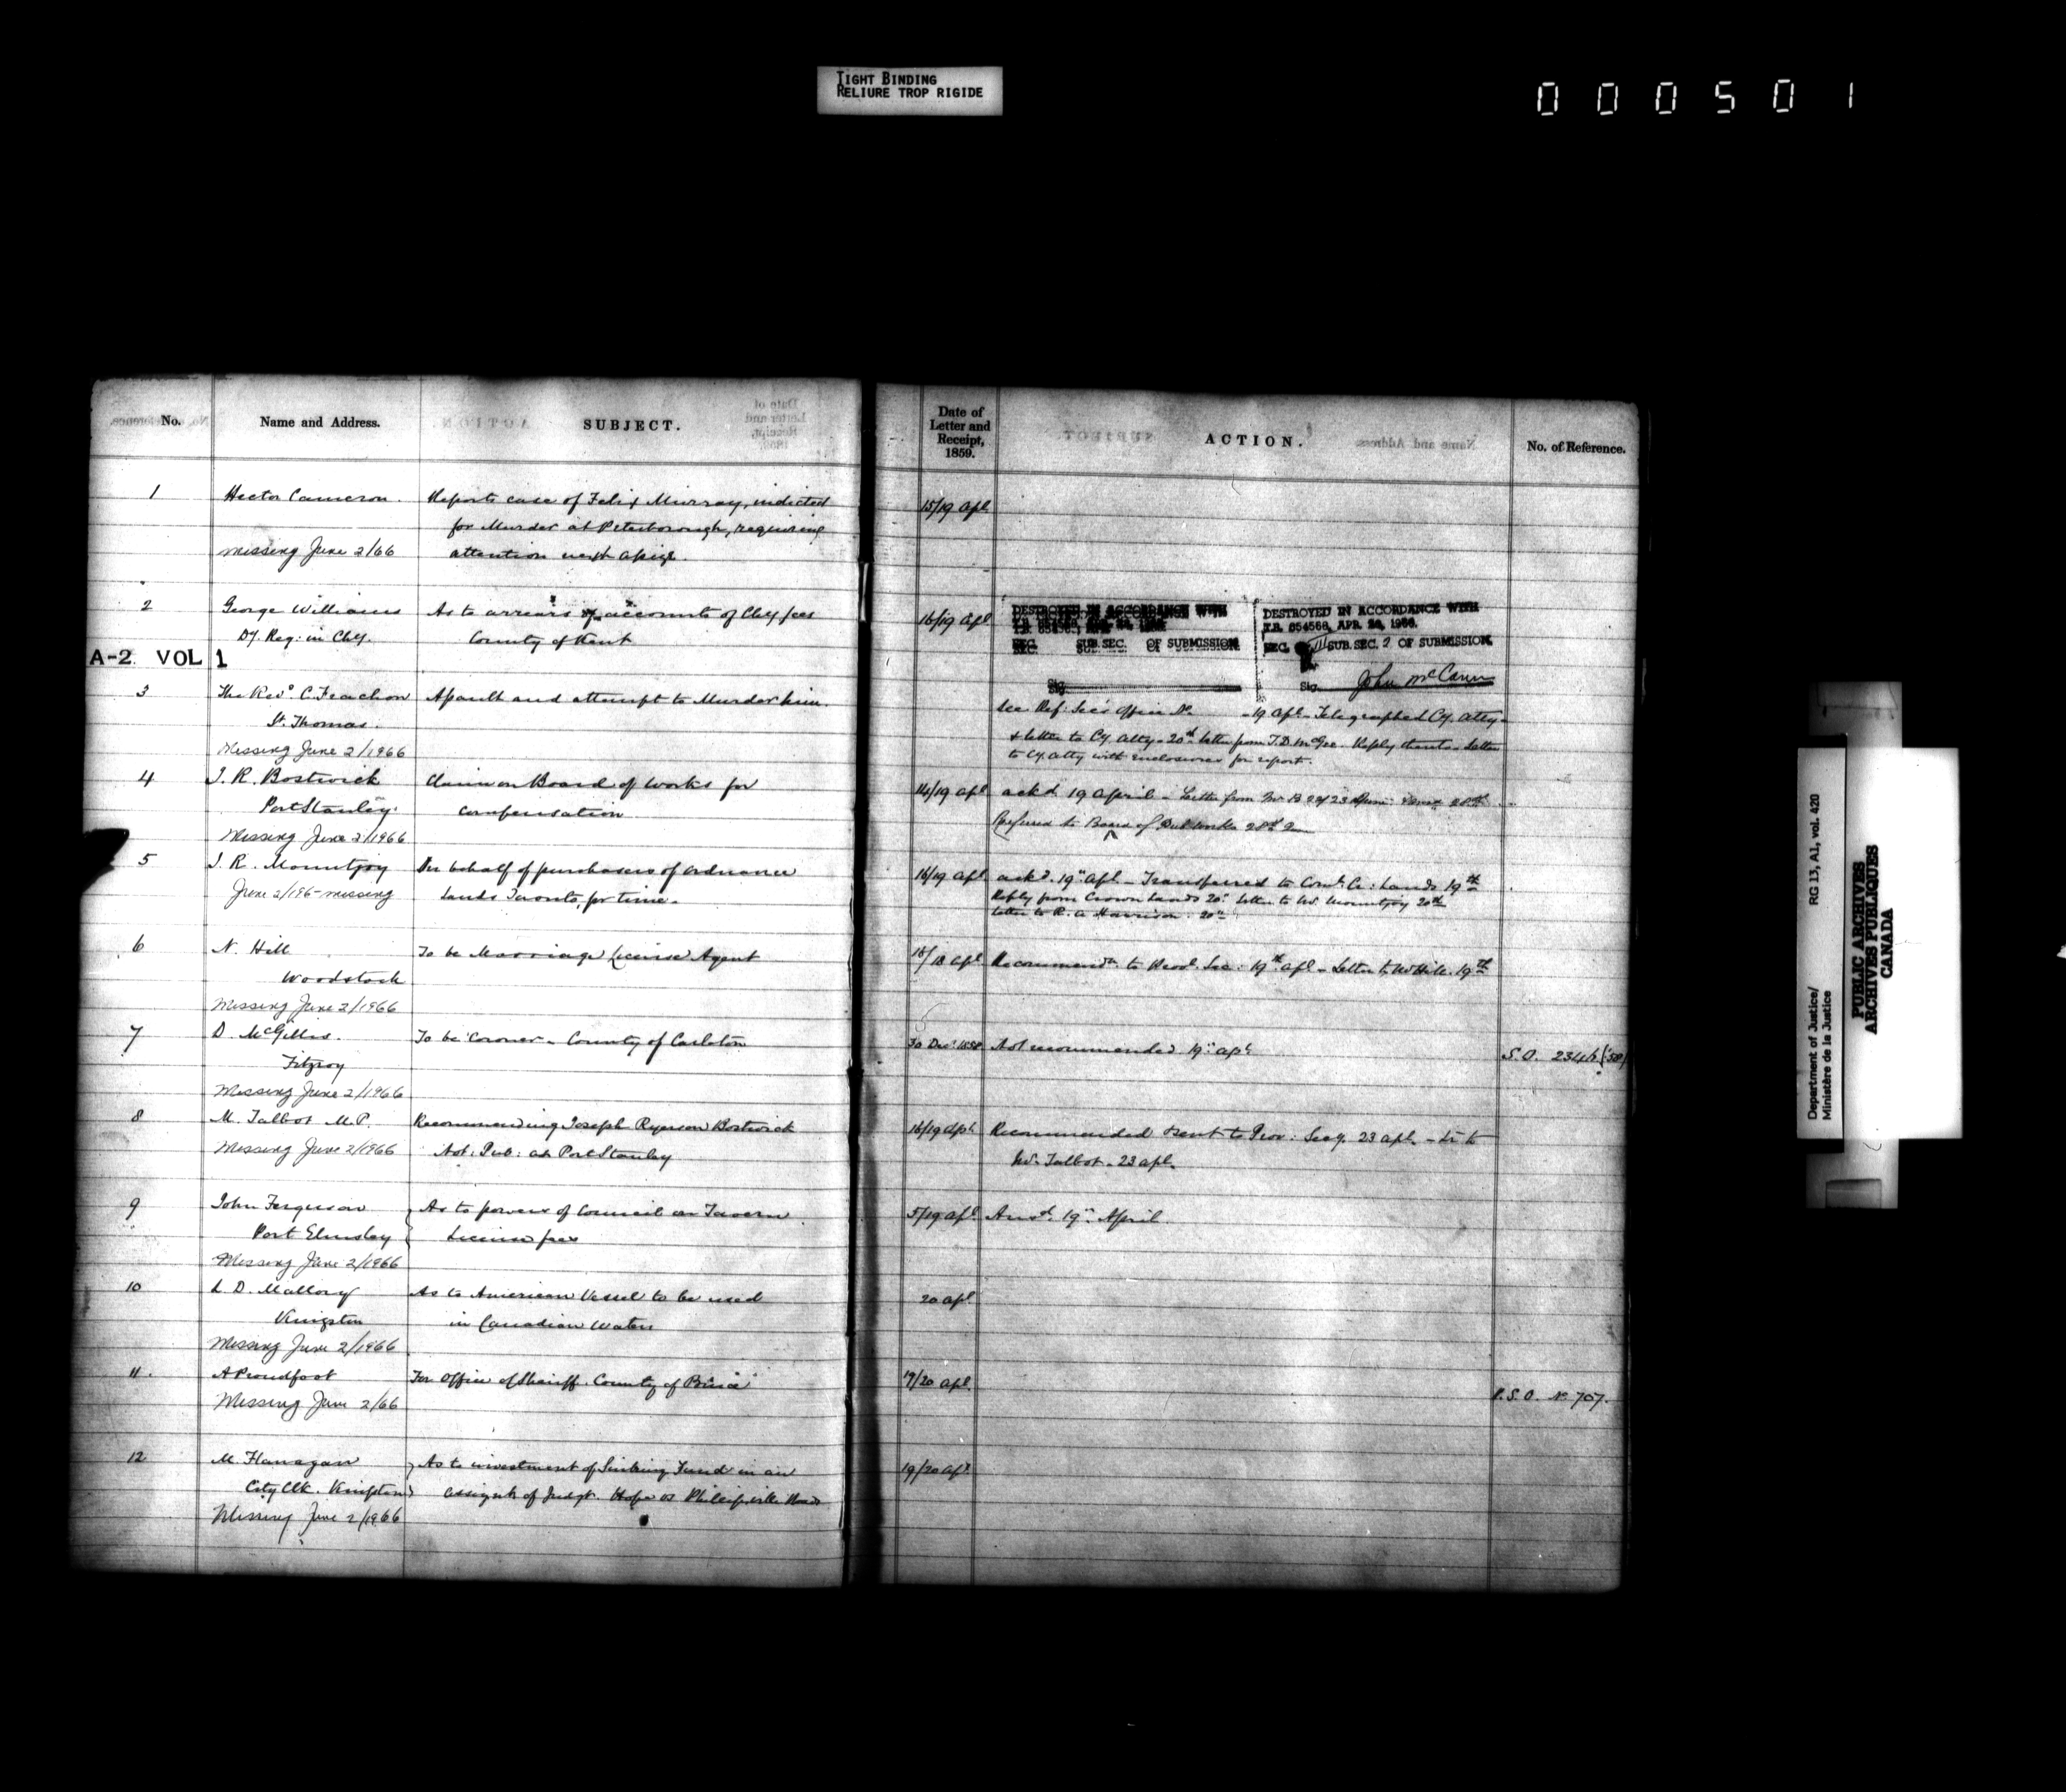 TIGHT BINDING
RELIURE TROP RIGIDE
000501
No.
Name and Address.
SUBJECT.
Date of
Letter and
Receipt,
1859.
ACTION.
No. of Reference.
1
Hector Cameron.
Reports case of Felix Murray, indicted
15/19 Apl
for Murder at Peterborough, requiring
missing June 2/66
attention next Assize.
2
George Williams
As to arrears of accounts of Chy fees
16/19 Apl
Dy. Reg: in Chy.
County of Kent
DESTROYED IN ACCORDANCE WITH
SEC. SUB.SEC. OF SUBMISSION
Sig.
DESTROYED IN ACCORDANCE WITH
T.B. 654568, APR. 26, 1966.
SEC. III SUB.SEC. 2 OF SUBMISSION.
Sig. John McCann
A-2 VOL 1
3
The Revd C.
Assault and attempt to Murder him.
St. Thomas.
See Ref: Sec's Office No. - 19 Apl - Telegraphed Cy. Atty -
Missing June 2/1966
& letter to Cy. Atty - 20th letter from T.D. McGee. Reply thereto - Letter
to Cy. Atty with enclosures for report.
4
J. R. Bostwick
Claim on Board of Works for
14/19 Apl
ackd 19 April - Letter from Mr B
Port Stanley.
compensation
Referred to Board of Pub Works 28th
Missing June 2/1966
5
J. R. Mountjoy
On behalf of purchasers of Ordnance
16/19 Apl
ackd. 19th Apl - Transferred to Comr. Cr: Lands 19th
June 2/196- missing
Lands Toronto, for time.
Reply from Crown Lands 20th Letter to Mr. Mountjoy 20th
Letter to R. A. Harrison. 20th
6
N. Hill
To be Marriage License Agent
18/18 Apl
Recommendn to Provl. Sec: 19th Apl - Letter to Mr Hill. 19th
Woodstock
Missing June 2/1966
7
D. McGillis.
To be Coroner - County of Carleton
30 Decr 1858
Not recommended. 19th Apl
S.O. 2346 (58)
Fitzroy
Missing June 2/1966
8
M. Talbot M.P.
Recommending Joseph Ryerson Bostwick
16/19 Apl
Recommended & sent to Prov: Secy. 23 Apl - Lr to
Missing June 2/1966
Not: Pub: at Port Stanley
Mr. Talbot - 23 Apl.
9
John Ferguson
As to powers of Council on Tavern
5/19 Apl
Ansd. 19th April.
Port Elmsley
License fees
Missing June 2/1966
10
L. D. Mallory
As to American Vessel to be used
20 Apl
Kingston
in Canadian Waters
Missing June 2/1966
11.
A Proudfoot
For Office of Sheriff. County of Bruce
19/20 Apl.
P.S.O. No. 707.
Missing June 2/66
12
M. Flanagan
As to investment of Sinking Fund in an
19/20 Apl.
City Clk. Kingston
assignt of Judgt. Hope vs Phillipsville Road
Missing June 2/1966
Department of Justice/
Ministère de la Justice
RG 13, A1, vol. 420
PUBLIC ARCHIVES
ARCHIVES PUBLIQUES
CANADA